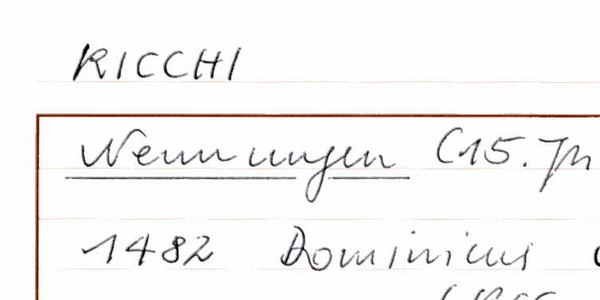 RICCHI
Nennungen (15. Jh
1482 Dominicus